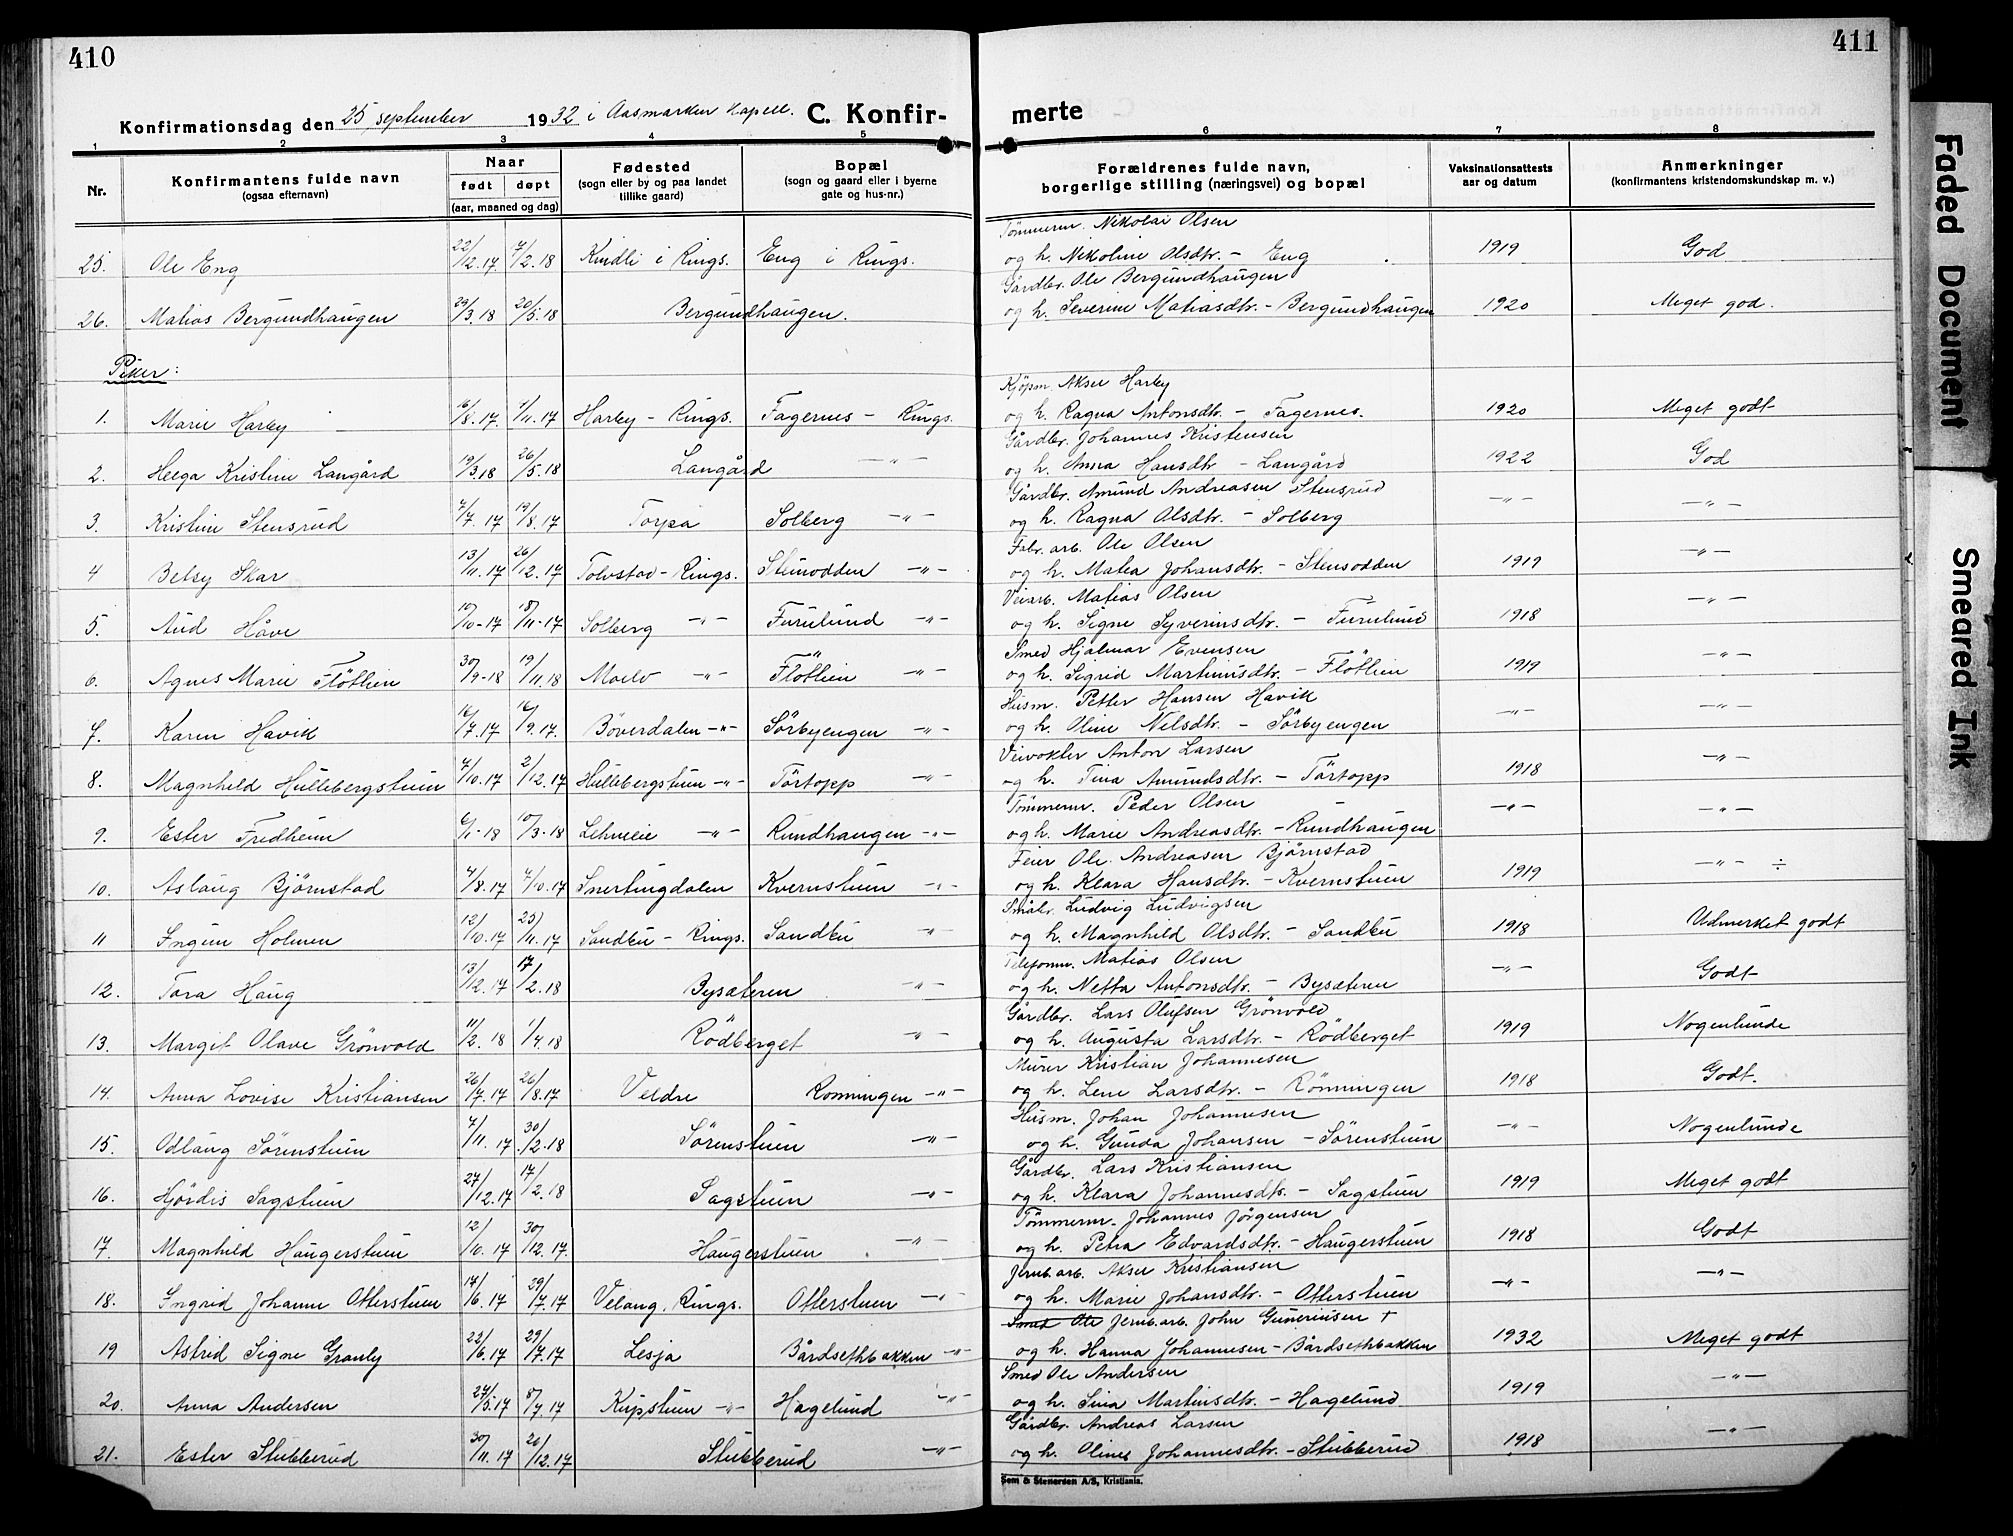 410
411
Konfirmationsdag den 25 september 1932 i Aasmarken Kapell. C. Konfir-
merte
1 2 3 4 5 6 7 8
Nr.
Konfirmantens fulde navn
(ogsaa efternavn)
Naar
født døpt
(aar, maaned og dag)
Fødested
(sogn eller by og paa landet
tillike gaard)
Bopæl
(sogn og gaard eller i byerne
gate og hus-nr.)
Forældrenes fulde navn,
borgerlige stilling (næringsvei) og bopæl
Vaksinationsattests
aar og datum
Anmerkninger
(konfirmantens kristendomskundskap m. v.)
Tömmerm. Nikolai Olsen
25. Ole Eng 22/12.17 7/2.18 Kindli i Rings. Eng i Rings. og h. Nikoline Olsdtr. - Eng 1919 God
Gårdbr. Ole Bergundhaugen
26. Matias Bergundhaugen 29/3.18 20/5.18 Bergundhaugen. og h. Severine Matiasdtr. - Bergundhaugen 1920 Meget god.
Piker:
Kjöpm. Aksel Harby
1. Marie Harby 16/8.17 4/11.17 Harby - Rings. Fagernes - Rings. og h. Ragna Antonsdtr. - Fagernes. 1920 Meget godt
Gårdbr. Johannes Kristensen
2. Helga Kristine Langård 19/3.18 26/5.18 Langård -"- og h. Anna Hansdtr. - Langård 1922 God
Gårdbr. Amund Andreasen Stensrud
3. Kristine Stensrud 7/7.17 19/8.17 Torpa Solberg -"- og h. Ragna Olsdtr. - Solberg -"- -"-
Fabr. arb. Ole Olsen
4 Betsy Skar 13/11.17 26/12.17 Tolvstad - Rings. Stenodden -"- og h. Matea Johansdtr. - Stensodden 1919 -"-
Veiarb. Matias Olsen
5. Aud Håve 10/10-17 18/11-17 Solberg -"- Furulund -"- og h. Signe Syverinsdtr. - Furulund 1918 -"-
Smed Hjalmar Evensen
6. Agnes Marie Flötlien 30/9-18 19/11.18 Moelv -"- Flötlien -"- og h. Sigrid Martinusdtr. - Flötlien 1919 -"-
Husm. Petter Hansen Havik
7. Karin Havik 16/7.17 16/9.17 Böverdalen -"- Sörbyengen -"- og h. Oline Nelsdtr. - Sörbyengen -"- -"-
Veivokter Anton Larsen
8. Magnhild Hullebergstuen 7/10.17 2/12.17 Hullebergstuen -"- Törtopp -"- og h. Tina Amundsdtr. - Törtopp 1918 -"-
Tömmerm. Peder Olsen
9. Ester Fredheim 6/1-18 10/3-18 Lehneie -"- Rundhaugen -"- og h. Marie Andreasdtr. - Rundhaugen -"- -"-
Feier Ole Andreasen Björnstad
10. Aslaug Björnstad 4/8.17 7/10.17 Snertingdalen Kvernstuen -"- og h. Klara Hansdtr. - Kvernstuen 1919 -"- ÷
Småbr. Ludvig Ludvigsen
11 Ingun Holmen 12/10.17 25/11.17 Sandbu - Rings. Sandbu -"- og h. Magnhild Olsdtr. - Sandbu 1918 Udmerket godt
Telefonm. Matias Olsen
12. Tora Haug 13/12.17 17/2.18 Bysæteren -"- og h. Netta Antonsdtr. - Bysæteren -"- Godt
Gårdbr. Lars Olufsen Grönvold
13. Margit Olave Grönvold 11/2.18 1/4.18 Rödberget -"- og h. Augusta Larsdtr. - Rödberget 1919 Nogenlunde
Murer Kristian Johannesen
14. Anna Lovise Kristiansen 26/7.17 26/8.17 Veldre Rönningen -"- og h. Lene Larsdtr. - Rönningen 1918 Godt.
Husm. Johan Johannesen
15. Odlaug Sörenstuen 7/11.17 30/2.18 Sörenstuen -"- og h. Gunda Johansen - Sörenstuen -"- Nogenlunde
Gårdbr. Lars Kristiansen
16. Hjördis Sagstuen 27/12.17 17/2.18 Sagstuen -"- og h. Klara Johannesdtr. - Sagstuen 1919 Meget godt
Tömmerm. Johannes Jörgensen
17. Magnhild Haugerstuen 12/10.17 30/12.17. Haugerstuen -"- og h. Petra Edvardsdtr. - Haugerstuen 1918 Godt
Jernb. arb. Aksel Kristiansen
18. Ingrid Johanne Otterstuen 17/6.17 29/7.17 Velang, Rings. Otterstuen -"- og h. Marie Johansdtr. - Otterstuen -"- -"-
Smed Ole Jernb. arb. John Gunerinsen +
19 Astrid Signe Granly 22/6.17 29/7.17 Lesja Bårdsethbakken -"- og h. Hanna Johannesen - Bårdsethbakken 1932 Meget godt
Smed Ole Andersen
20. Anna Andersen 27/5.17 8/7.17 Kupstuen -"- Hagelund -"- og h. Sina Martinsdtr. - Hagelund 1919 -"-
Gårdbr. Andreas Larsen
21. Ester Stubberud 30/11.17 26/12.17 Stubberud -"- og h. Oline Johannesdtr. - Stubberud 1918 -"-
Sem & Stenersen A/S, Kristiania.
Faded Document
Smeared Ink